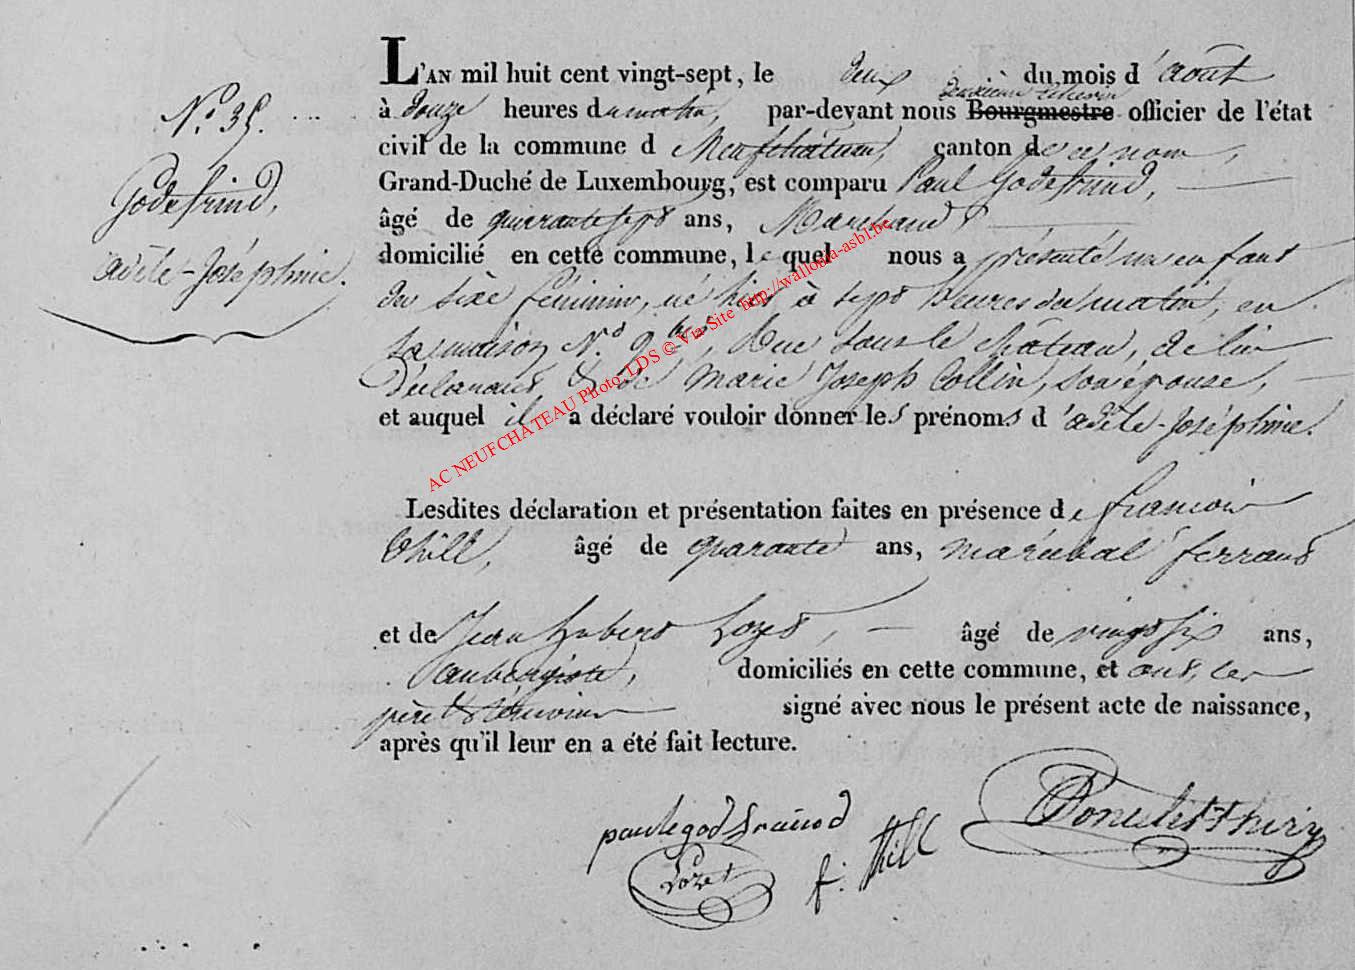 N.º 35.
Godefrind,
adèle-Joséphine.
L'AN mil huit cent vingt-sept, le deux du mois d'août
deuxième Echevin
à douze heures du matin, par-devant nous Bourgmestre officier de l'état
civil de la commune d Neufchâteau, canton de ce nom,
Grand-Duché de Luxembourg, est comparu Paul Godefrind,
âgé de quarante sept ans, Marchand
domicilié en cette commune, lequel nous a présenté un enfant
du sexe féminin, né hier à sept heures du matin, en
sa maison N.º 9 bis, Rue sous le château, de lui
Déclarant & de Marie Joseph Collin, son épouse,
et auquel il a déclaré vouloir donner les prénoms d'adèle-Joséphine.
Lesdites déclaration et présentation faites en présence de françois
Thill, âgé de quarante ans, maréchal ferrant
et de Jean hubert Lozet, âgé de vingt six ans,
aubergiste, domiciliés en cette commune, et ont, les
père & témoins signé avec nous le présent acte de naissance,
après qu'il leur en a été fait lecture.
paul godfrind
Lozet
f. Thill
Poncelet Thiry
AC NEUFCHATEAU Photo: LDS © Via Site http://wallonia-asbl.be